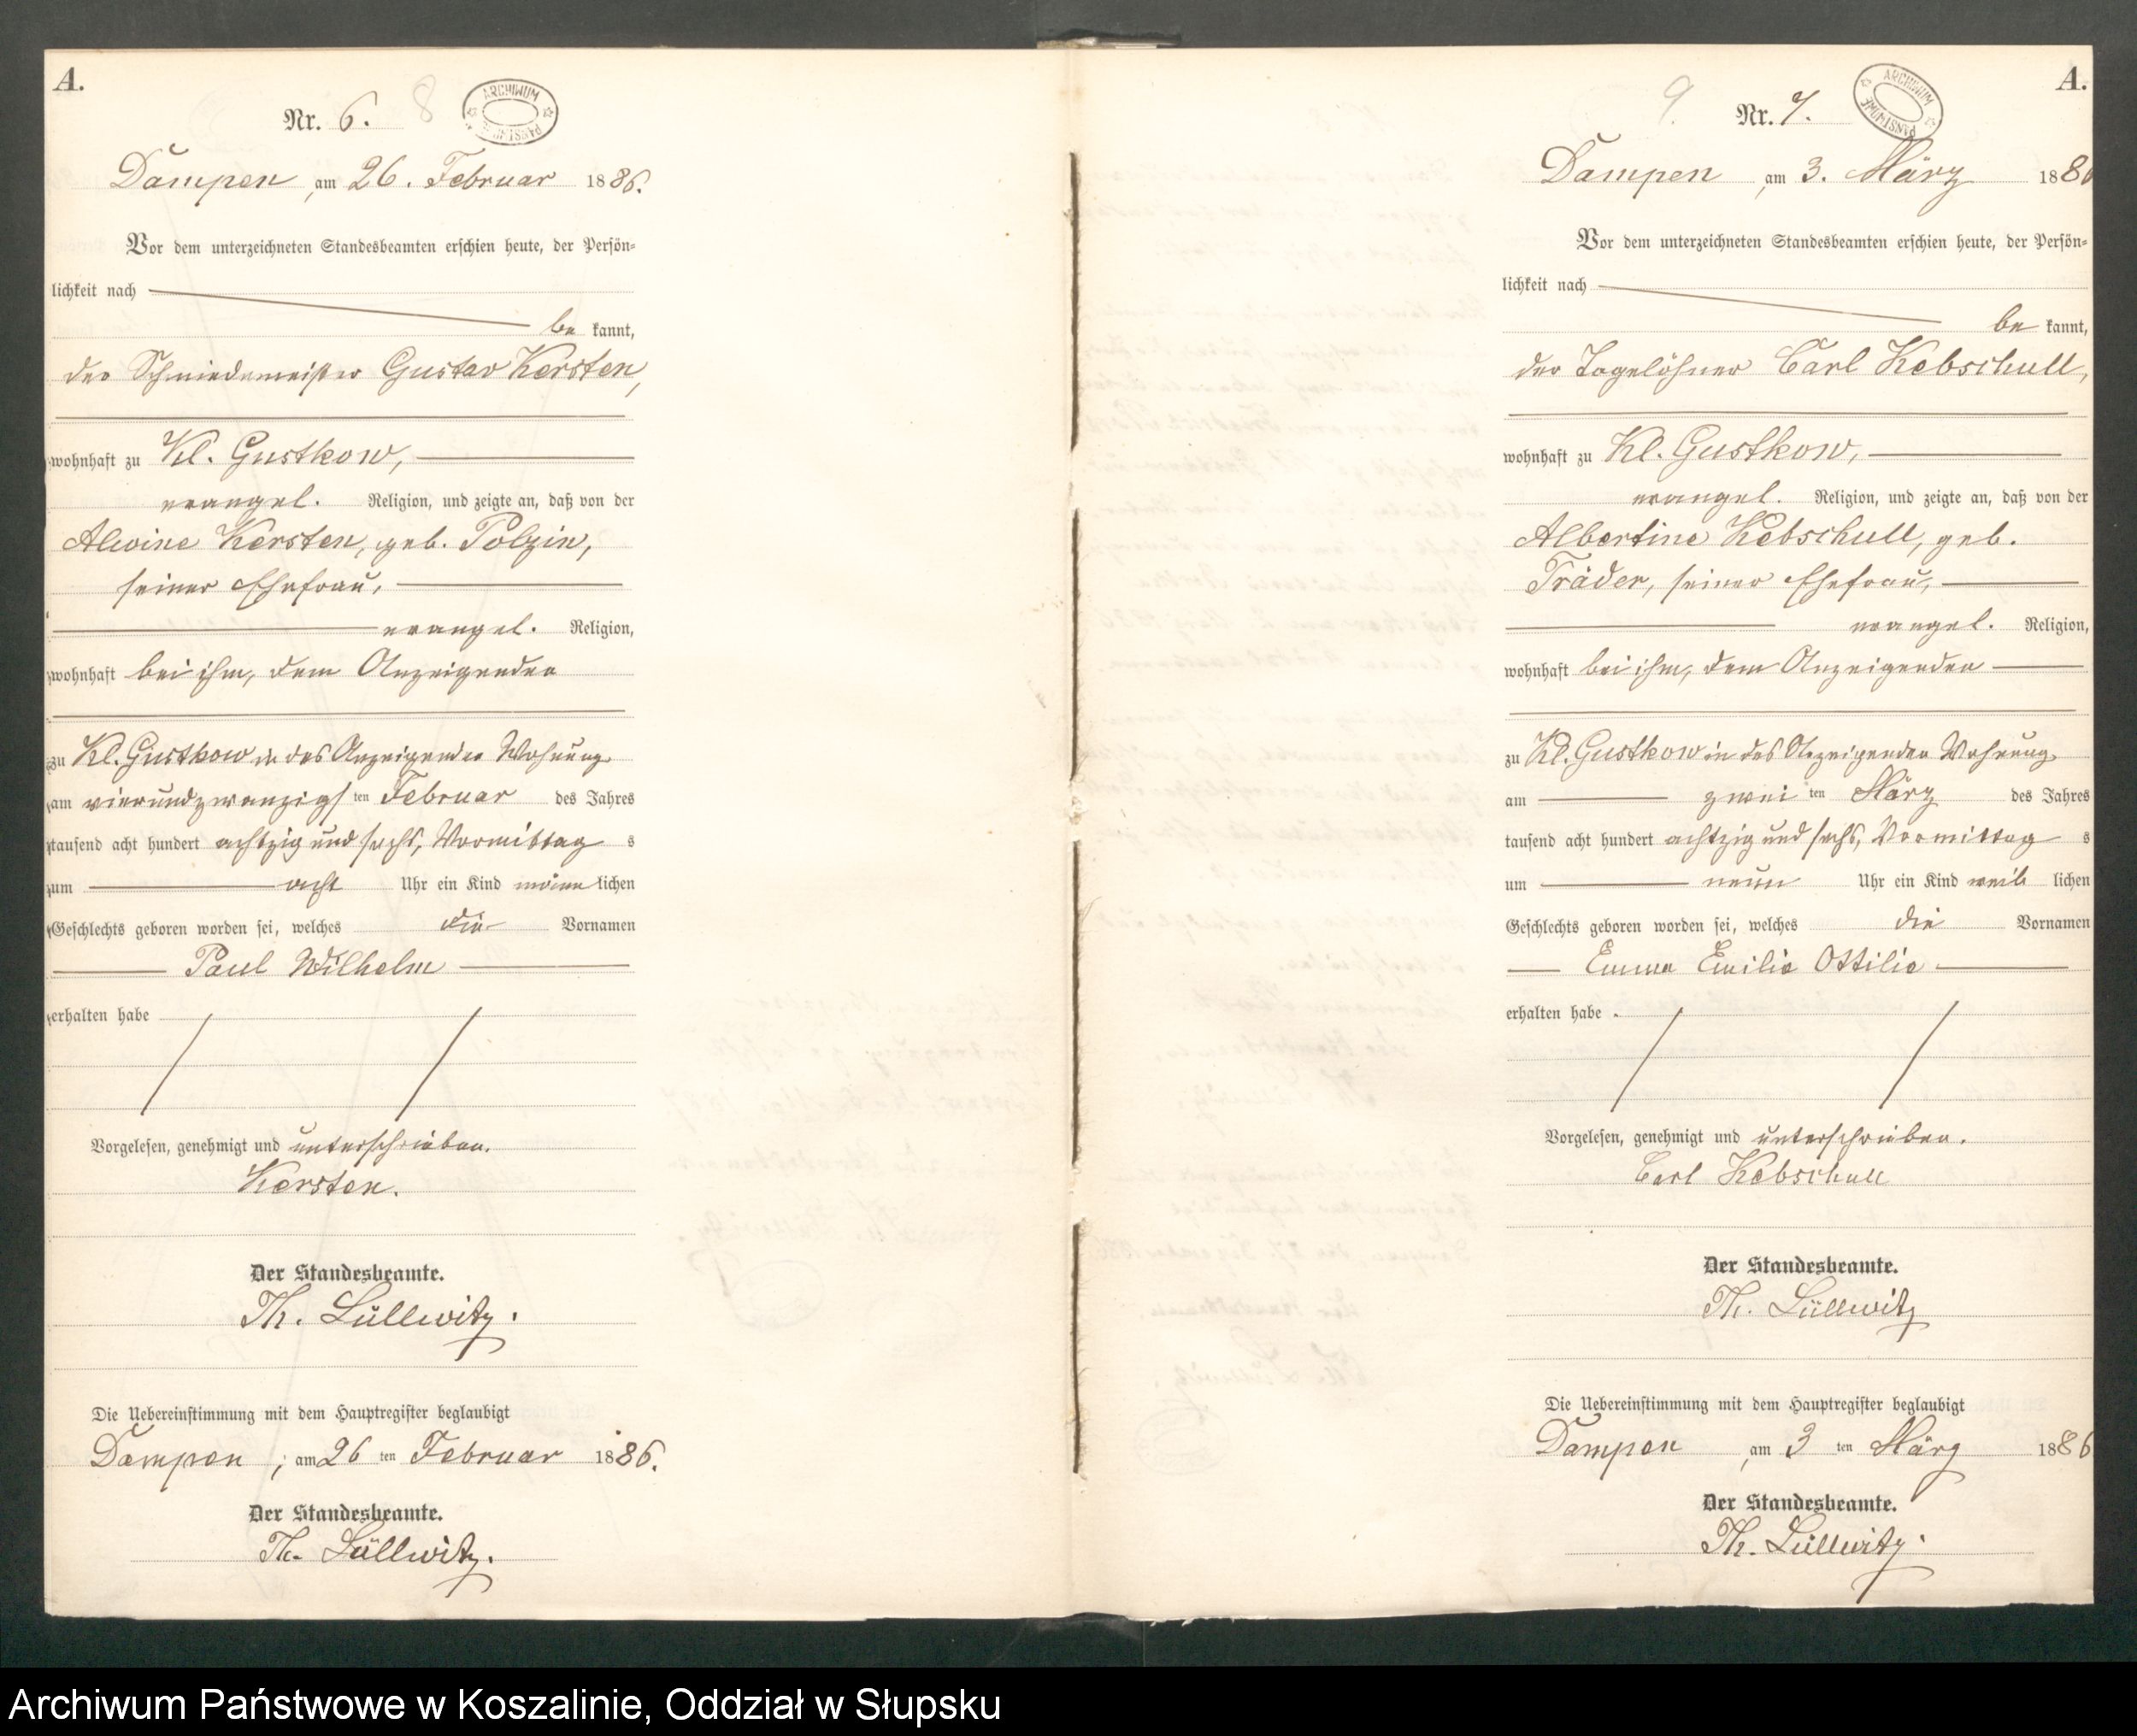 A.
Nr. 6.
8
ARCHIWUM
Dampen, am 26. Februar 1886.
Vor dem unterzeichneten Standesbeamten erschien heute, der Persön-
lichkeit nach
be kannt,
der Schmiedemeister Gustav Kersten,
wohnhaft zu Kl. Gustkow,
evangel. Religion, und zeigte an, daß von der
Alwine Kersten, geb. Polzin,
seiner Ehefrau,
evangel. Religion,
wohnhaft bei ihm, dem Anzeigenden
zu Kl. Gustkow in des Anzeigenden Wohnung
am vierundzwanzigs ten Februar des Jahres
tausend acht hundert achtzig und sechs, Vormittag s
um acht Uhr ein Kind männ lichen
Geschlechts geboren worden sei, welches die Vornamen
Paul Wilhelm
erhalten habe
Vorgelesen, genehmigt und unterschrieben.
Kersten.
Der Standesbeamte.
Th. Lüllwitz.
Die Uebereinstimmung mit dem Hauptregister beglaubigt
Dampen, am 26 ten Februar 1886.
Der Standesbeamte.
Th. Lüllwitz.
A.
9.
Nr. 7.
ARCHIWUM PAŃSTWOWE
Dampen, am 3. März 188
Vor dem unterzeichneten Standesbeamten erschien heute, der Persön-
lichkeit nach
be kannt,
der Tagelöhner Carl Kebschull,
wohnhaft zu Kl. Gustkow,
evangel. Religion, und zeigte an, daß von der
Albertine Kebschull, geb.
Träder, seiner Ehefrau,
evangel. Religion,
wohnhaft bei ihm, dem Anzeigenden
zu Kl. Gustkow in des Anzeigenden Wohnung
am zwei ten März des Jahres
tausend acht hundert achtzig und sechs, Vormittag s
um neun Uhr ein Kind weib lichen
Geschlechts geboren worden sei, welches die Vornamen
Emma Emilie Ottilie
erhalten habe.
Vorgelesen, genehmigt und unterschrieben.
Carl Kebschull
Der Standesbeamte.
Th. Lüllwitz
Die Uebereinstimmung mit dem Hauptregister beglaubigt
Dampen, am 3 ten März 1886
Der Standesbeamte.
Th. Lüllwitz.
Archiwum Państwowe w Koszalinie, Oddział w Słupsku